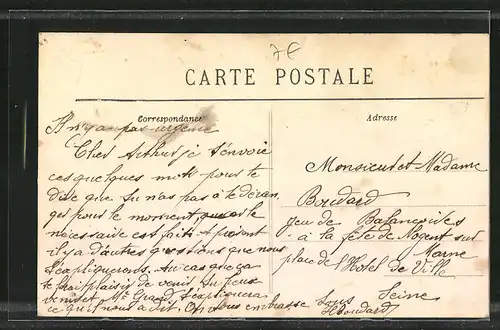 7E
CARTE POSTALE
Correspondance
Il n'y a pas urgence
Cher Arthur je t'envoie
ces quelques mots pour te
dire que tu n'as pas à te déran
ger pour le moment, le
nécessaire est fait. A présent
il y a d'autres questions que nous
t'expliquerons. Au cas que ça
te frait plaisir de venir. Tu peux
venir et Mr t'expliquera
ce qu'il nous a dit. On vous embrasse tous
Houdard
Adresse
Monsieur et Madame
Boudard
jeu de Balançoires
à la fête de Nogent sur
Marne
place de l'Hotel de Ville
Seine